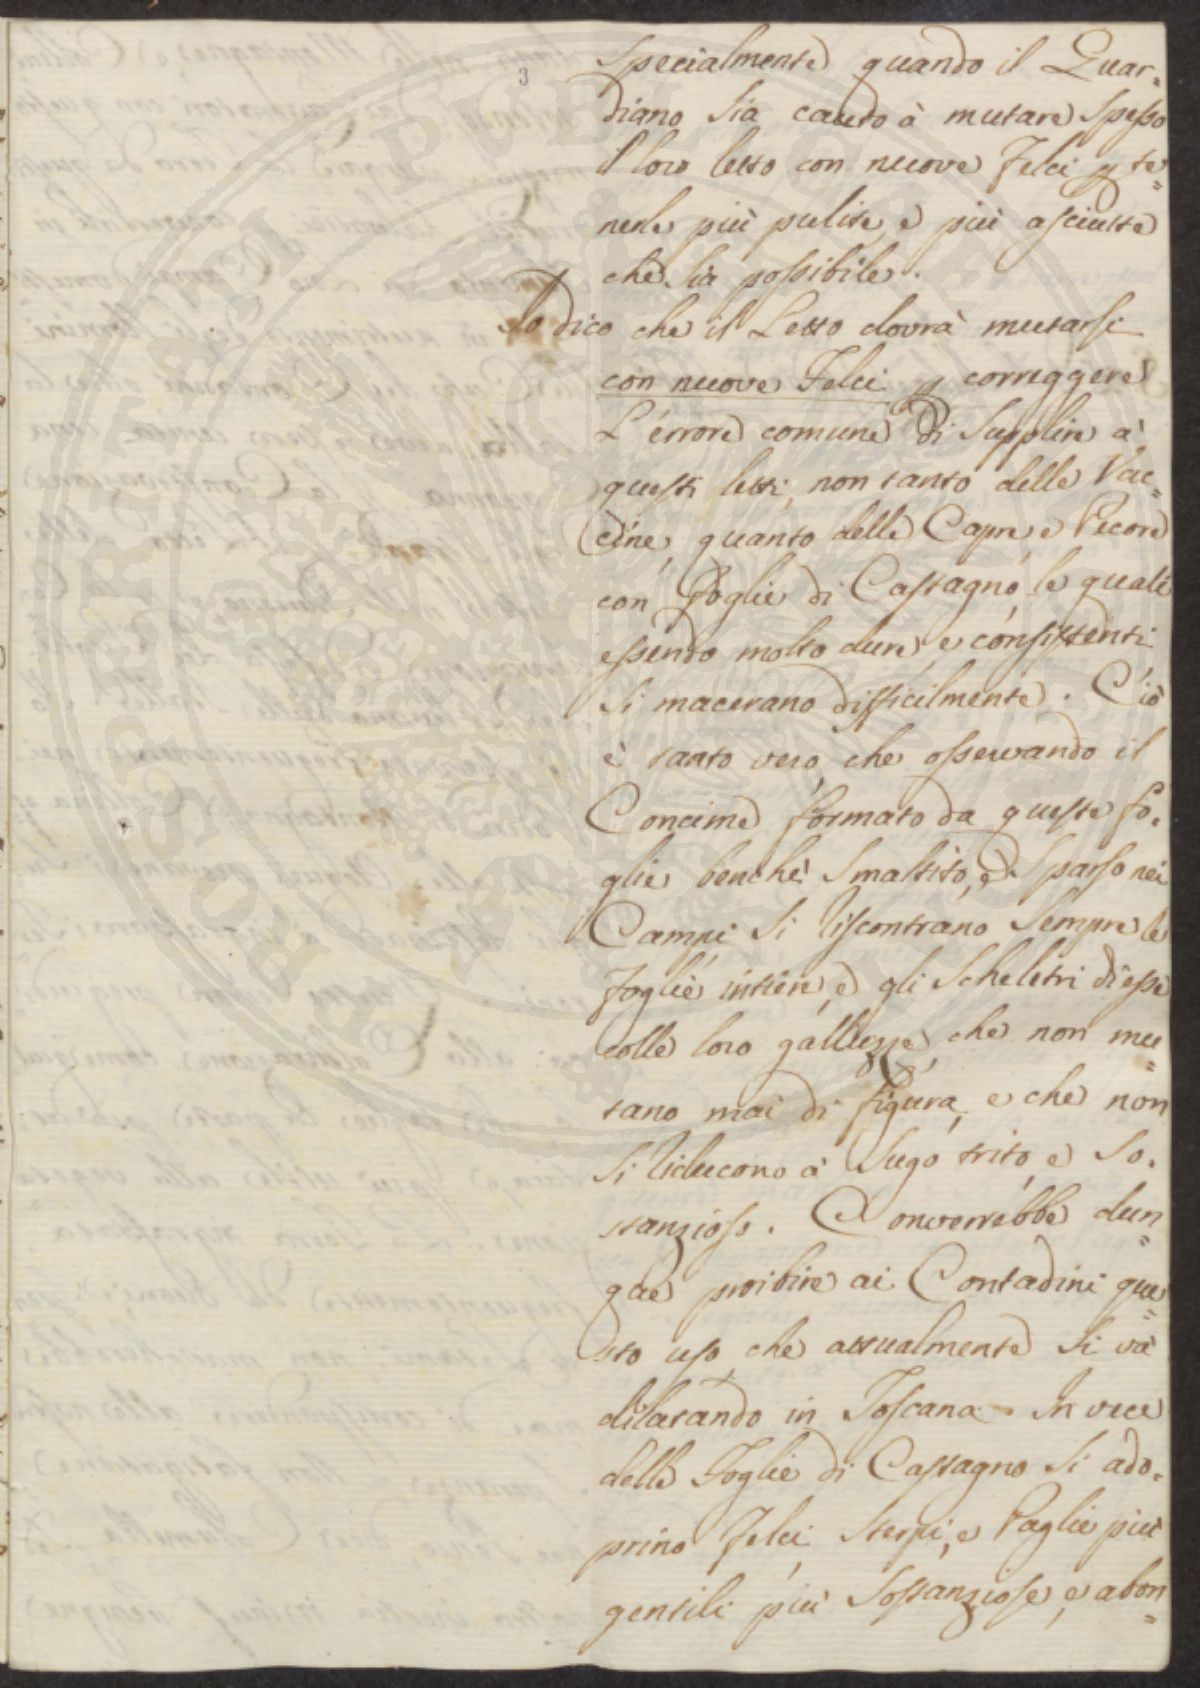 3
Specialmente quando il Guar-
diano Sia cauto à mutare Spesso
il loro letto con nuove Felci p te=
nerle più pulite, e più asciutte
che Sia possibile.
Io dico che il Letto dovrà mutarsi
con nuove Felci p correggere
L'errore comune di Supplire a'
questi letti, non tanto delle Vac=
cine, quanto delle Capre, e Pecore
con foglie di Castagno, le quali
essendo molto dure, e consistenti
Si macerano difficilmente. Ciò
è tanto vero, che osservando il
Concime formato da queste fo-
glie benchè Smaltito, e Sparso nei
Campi Si riscontrano Sempre le
foglie intiere, e gli Scheletri di esse
colle loro che non mu=
tano mai di figura, e che non
Si riducono a' Sugo trito, e So-
stanzioso. Converrebbe dun=
que proibire ai Contadini que=
sto uso, che attualmente Si và
dilatando in Toscana. In vece
delle Foglie di Castagno Si ado-
prino Felci, Sterpi, e Paglie più
gentili, più Sostanziose, e abon=
PROSPERITATI PUBLICAE